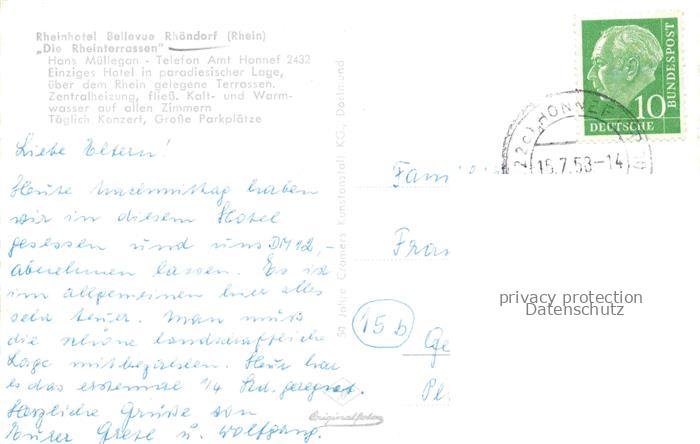 Rheinhotel Bellevue Rhöndorf (Rhein)
„Die Rheinterrassen"
Hans Müllegan - Telefon Amt Honnef 2432
Einziges Hotel in paradiesischer Lage,
über dem Rhein gelegene Terrassen.
Zentralheizung, fließ. Kalt- und Warm-
wasser auf allen Zimmern
Täglich Konzert, Große Parkplätze
Liebe Eltern!
Heute nachmittag haben
wir in diesem Hotel
gesessen und uns DM 12,-
abnehmen lassen. Es ist
im allgemeinen hier alles
sehr teuer. Man muß
die schöne landschaftliche
Lage mitbezahlen. Heut hat
es das erstemal 1/4 Std. geregnet.
Herzliche Grüße von
Eurer Grete u. Wolfgang.
50 Jahre Cramers Kunstanstalt KG., Dortmund
Originalfoto
DEUTSCHE
BUNDESPOST
10
(22c) HONNEF
15.7.58-14
Fam
Fra
15b
Ge
Pl
privacy protection
Datenschutz